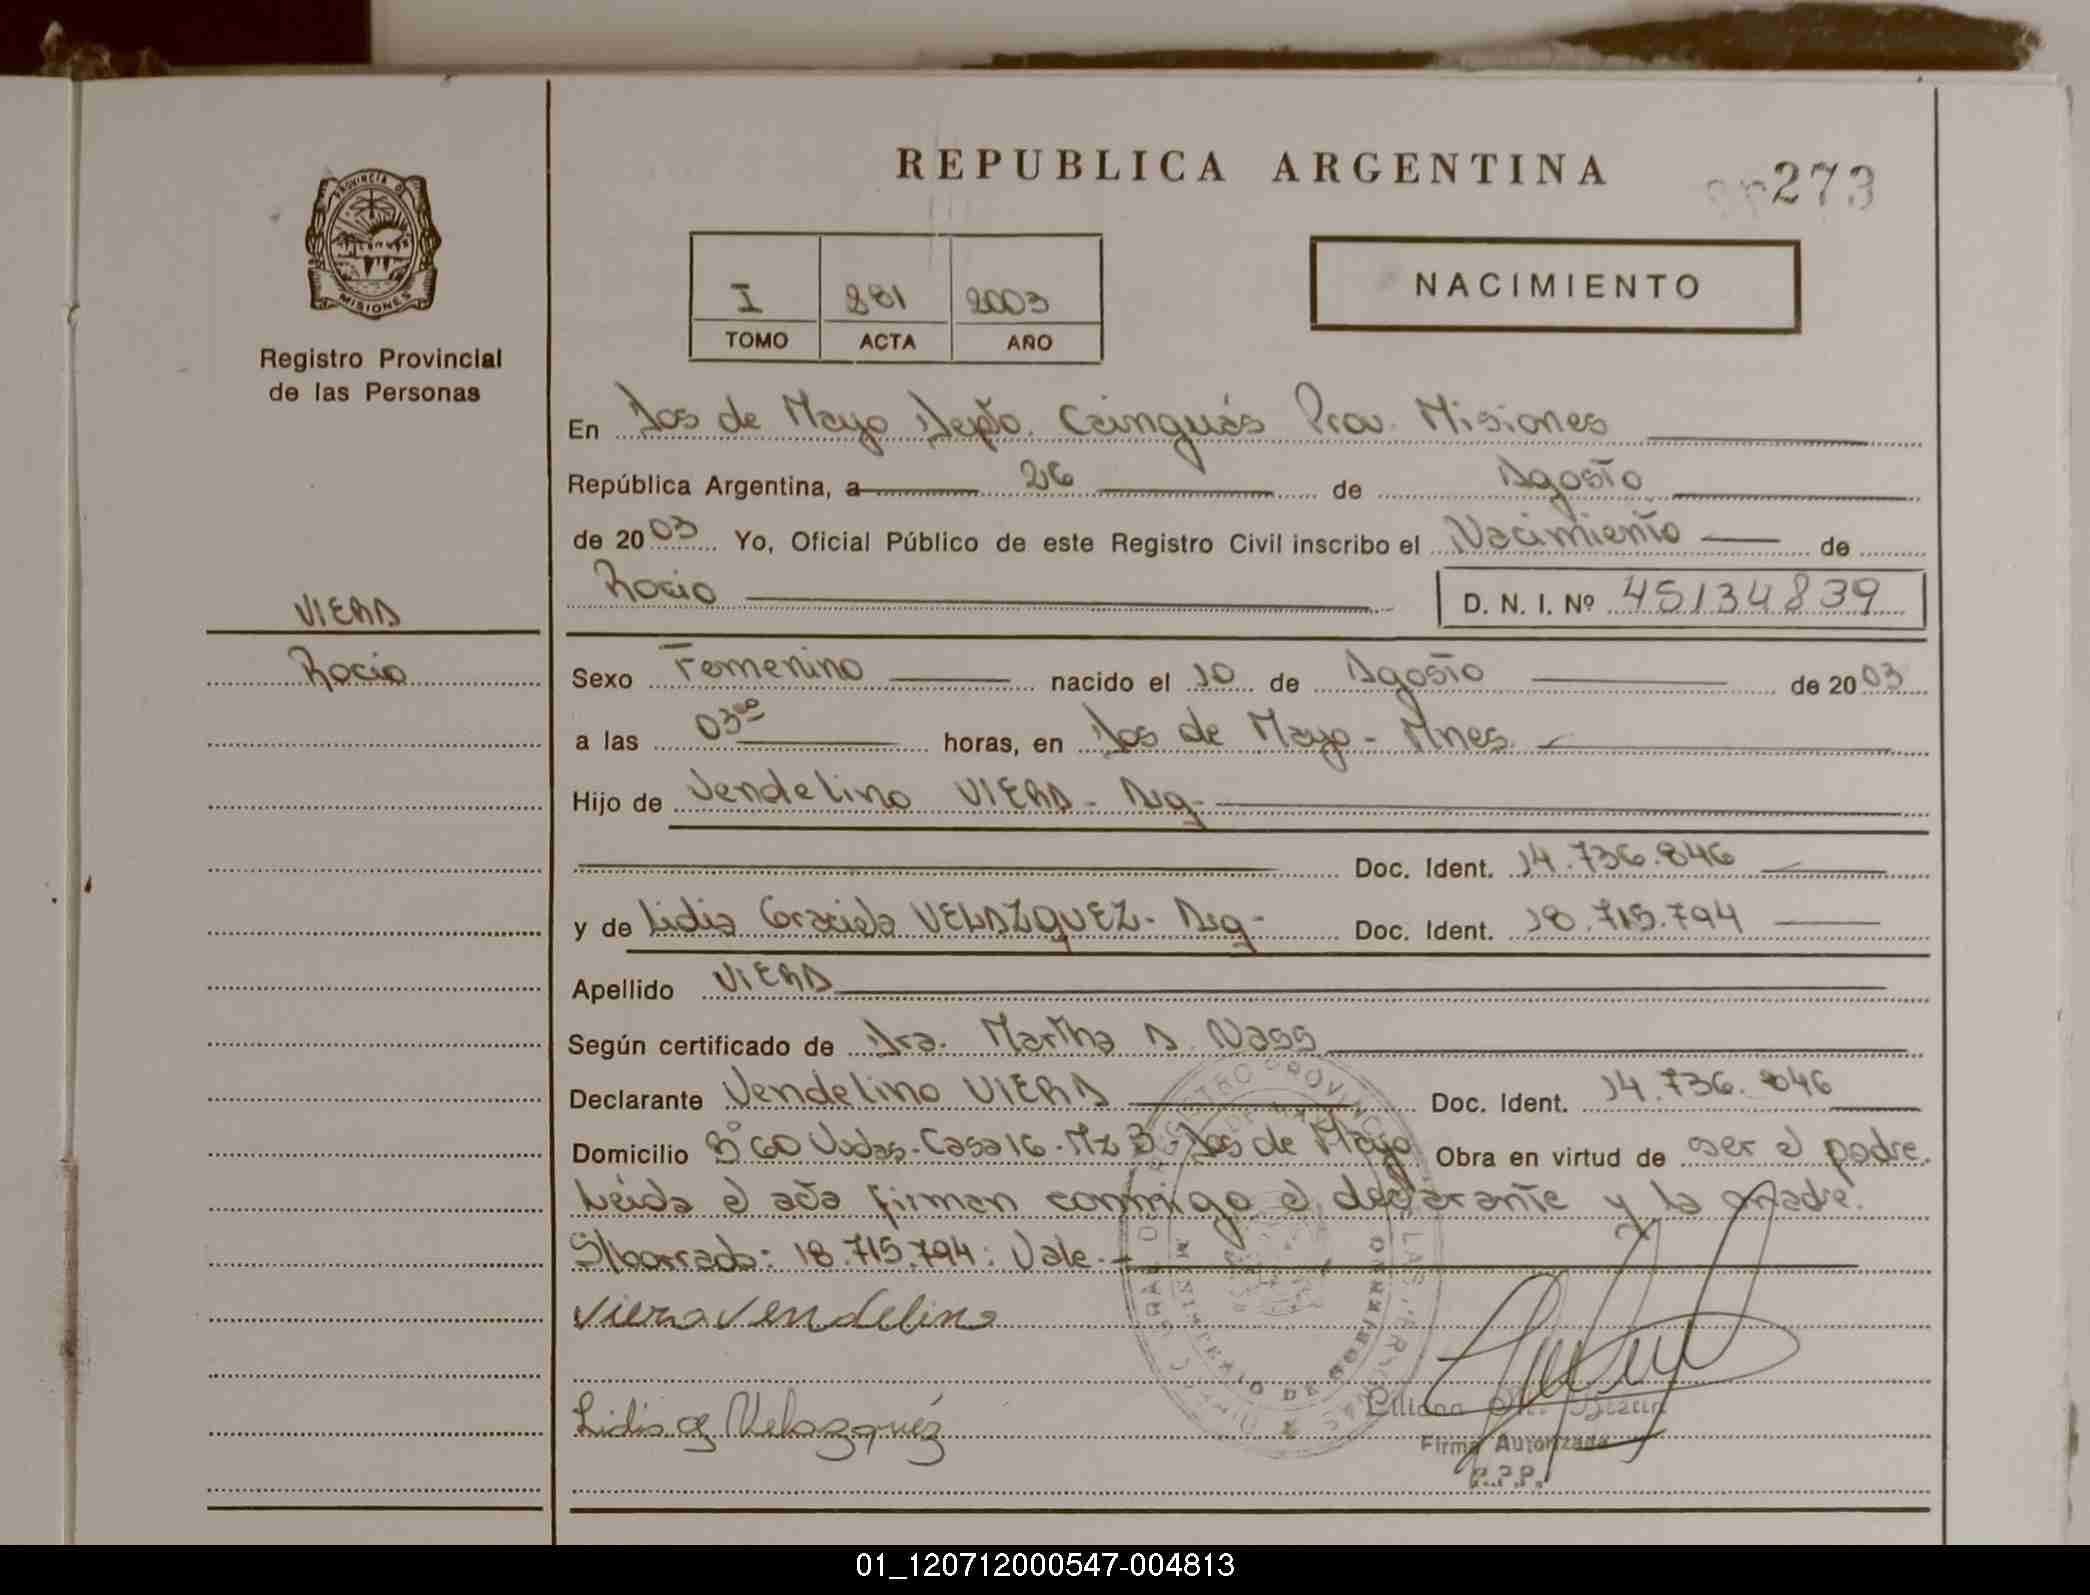 REPUBLICA ARGENTINA
273
PROVINCIA D
MISIONES
Registro Provincial
de las Personas
I 281 2003
TOMO ACTA AÑO
NACIMIENTO
En Dos de Mayo Depto. Cainguás Prov. Misiones
República Argentina, a 26 de Agosto
de 2003 Yo, Oficial Público de este Registro Civil inscribo el Nacimiento de
Rocio D. N. I. Nº 45134839
VIERA
Rocio
Sexo Femenino nacido el 10 de Agosto de 2003
a las 03⁰⁰ horas, en Dos de Mayo - Mnes.
Hijo de Vendelino VIERA - Arg-
Doc. Ident. 14.736.846
y de Lidia Graciela VELAZQUEZ - Arg- Doc. Ident. 18.715.794
Apellido VIERA
Según certificado de Dra. Martha A. Nass
Declarante Vendelino VIERA Doc. Ident. 14.736.846
Domicilio Bº 60 Vvdas. Casa 16 - Mz 3 - Dos de Mayo Obra en virtud de ser el padre.
Leída el acta firman conmigo el declarante y la madre.
S/borrado: 18.715.794: Vale.-
Viera Vendelino
Lidia G Velazquéz
Firma Autorizada
R.P.P.
01_120712000547-004813